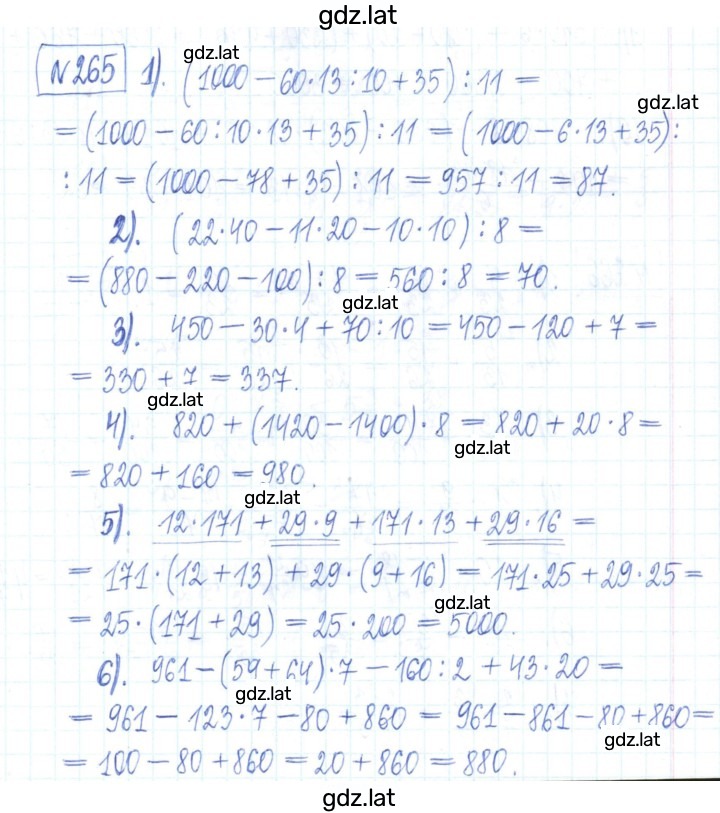 gdz.lat
№265 1). (1000 − 60·13:10 + 35):11 =
gdz.lat
gdz.lat
= (1000 − 60:10·13 + 35):11 = (1000 − 6·13 + 35):
:11 = (1000 − 78 + 35):11 = 957:11 = 87.
2). (22·40 − 11·20 − 10·10):8 =
= (880 − 220 − 100):8 = 560:8 = 70.
gdz.lat
3). 450 − 30·4 + 70:10 = 450 − 120 + 7 =
= 330 + 7 = 337.
gdz.lat
4). 820 + (1420 − 1400)·8 = 820 + 20·8 =
gdz.lat
= 820 + 160 = 980.
gdz.lat
5). 12·171 + 29·9 + 171·13 + 29·16 =
= 171·(12 + 13) + 29·(9 + 16) = 171·25 + 29·25 =
gdz.lat
= 25·(171 + 29) = 25·200 = 5000.
6). 961 − (59 + 64)·7 − 160:2 + 43·20 =
gdz.lat
= 961 − 123·7 − 80 + 860 = 961 − 861 − 80 + 860 =
gdz.lat
= 100 − 80 + 860 = 20 + 860 = 880.
gdz.lat